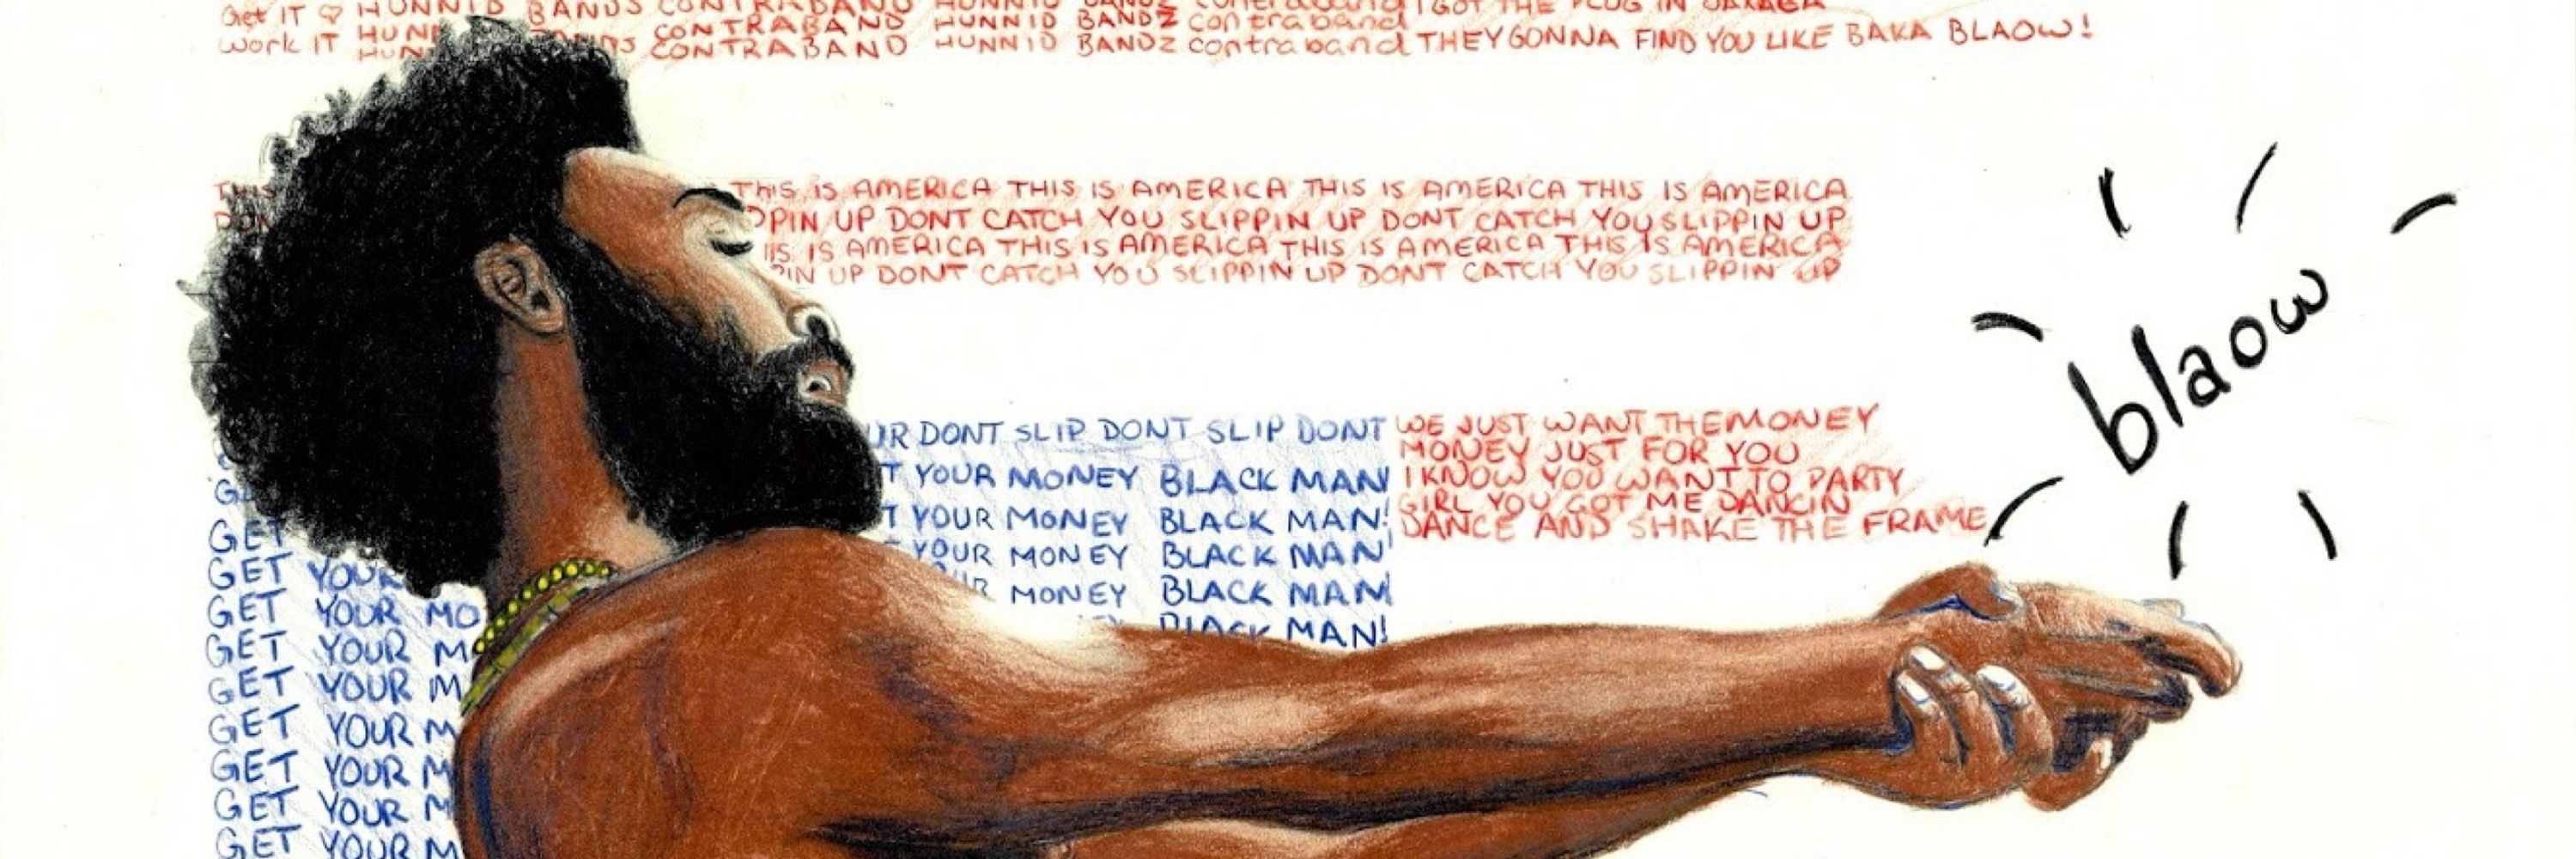 Get IT HUNNID BANDS CONTRABAND HUNNID BANDZ contraband I GOT THE PLUG IN OAXACA
Work IT CONTRABAND HUNNID BANDZ contraband THEY GONNA FIND YOU LIKE BAKA BLAOW!
CONTRABAND
THIS THIS IS AMERICA THIS IS AMERICA THIS IS AMERICA THIS IS AMERICA
DON PPIN UP DONT CATCH YOU SLIPPIN UP DONT CATCH YOU SLIPPIN UP
IS IS AMERICA THIS IS AMERICA THIS IS AMERICA THIS IS AMERICA
PIN UP DONT CATCH YOU SLIPPIN UP DONT CATCH YOU SLIPPIN UP
blaow
UR DONT SLIP DONT SLIP DONT WE JUST WANT THE MONEY
MONEY JUST FOR YOU
T YOUR MONEY BLACK MAN! I KNOW YOU WANT TO PARTY
GIRL YOU GOT ME DANCIN
GET T YOUR MONEY BLACK MAN! DANCE AND SHAKE THE FRAME
GET YOUR YOUR MONEY BLACK MAN!
GET YOUR MO UR MONEY BLACK MAN
GET YOUR M BLACK MAN!
GET YOUR M
GET YOUR M
GET YOUR M
GET YOUR M
GET YOUR M